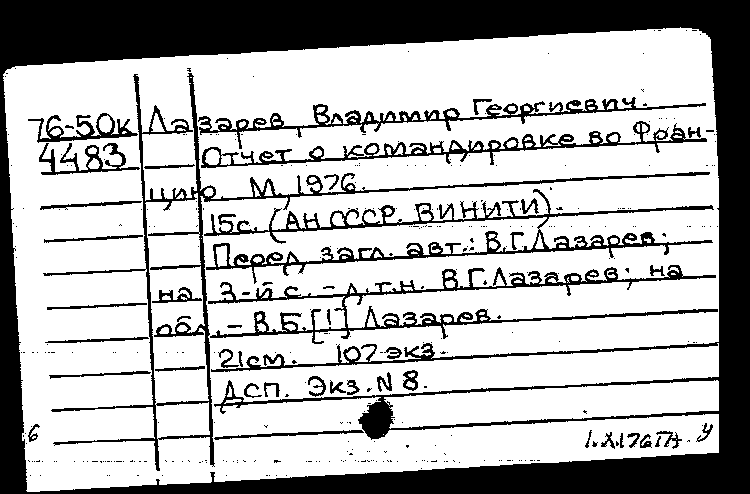 76-50к Лазарев, Владимир Георгиевич.
4483 Отчет о командировке во Фран-
цию. М., 1976.
15с. (АН СССР. ВИНИТИ).
Перед загл. авт.: В.Г.Лазарев;
на 3-й с. - д.т.н. В.Г.Лазарев; на
обл. - В.Б.[!] Лазарев.
21см. 107 экз.
ДСП. Экз. N 8.
6
у